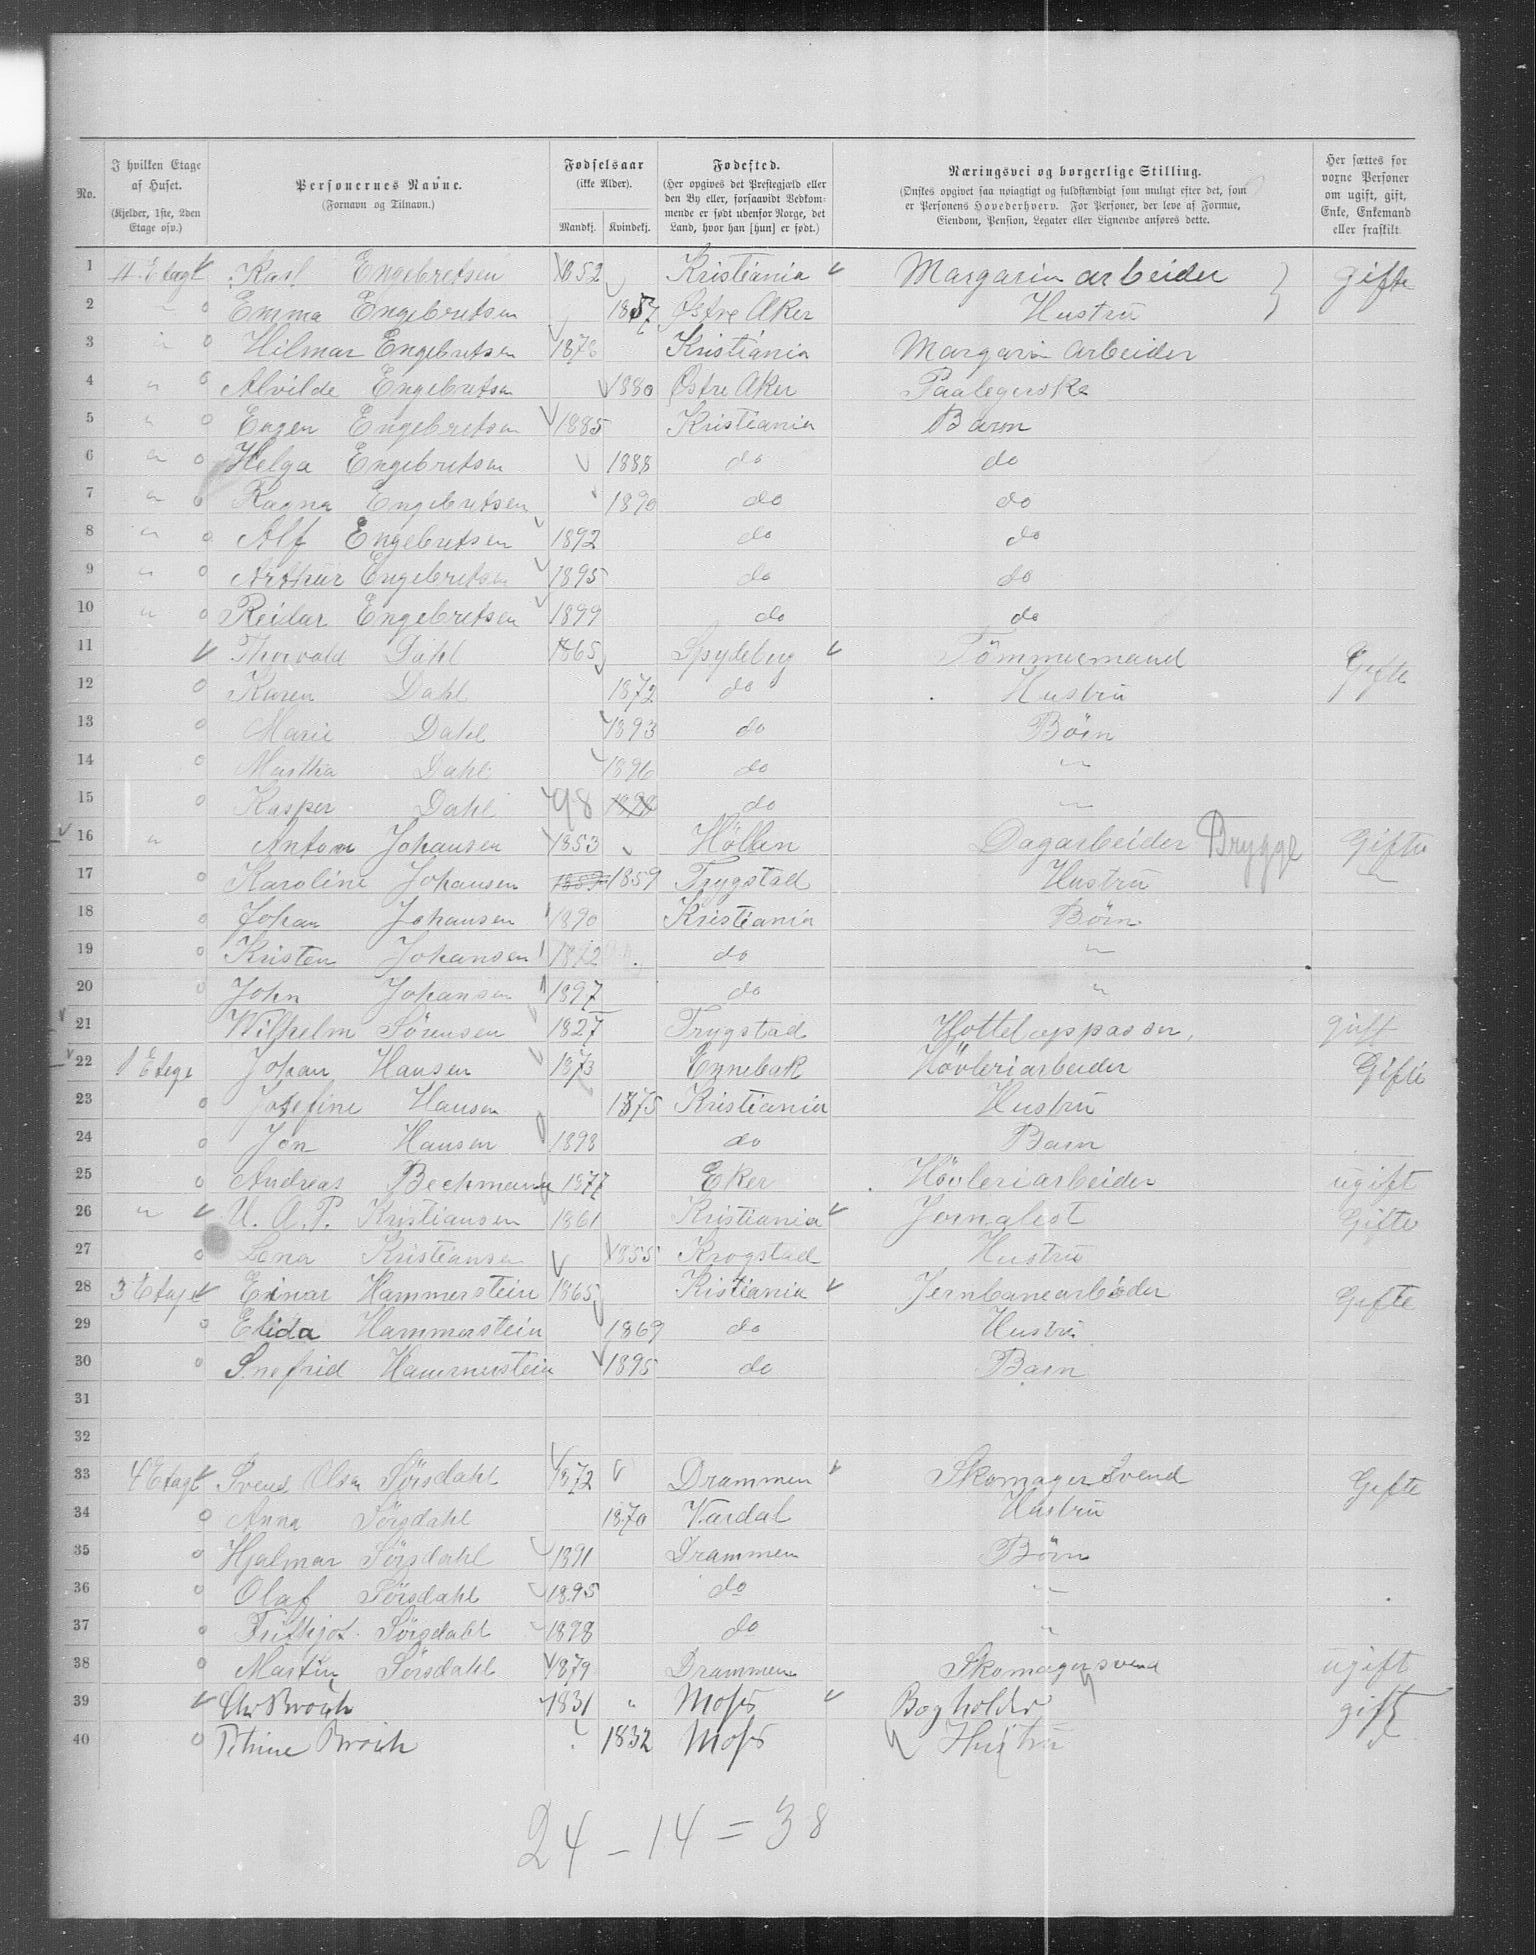 No. | I hvilken Etage af Huset. (Kjelder, 1ste, 2den Etage osv.) | Personernes Navne. (Fornavn og Tilnavn.) | Fødselsaar (ikke Alder). Mandkj. | Kvindekj. | Fødested. (Her opgives det Prestegjæld eller den By eller, forsaavidt Vedkommende er født udenfor Norge, det Land, hvor han [hun] er født.) | Næringsvei og borgerlige Stilling. (Ønskes opgivet saa nøiagtigt og fuldstændigt som muligt efter det, som er Personens Hovederhverv. For Personer, der leve af Formue, Eiendom, Pension, Legater eller Lignende anføres dette. | Her sættes for voxne Personer om ugift, gift, Enke, Enkemand eller fraskilt.
1 4 Etage Karl Engebretsen 1852 Kristiania Margarin arbeider } gifte
2 " o Emma Engebretsen 1857 Østre Aker Hustru
3 " o Hilmar Engebretsen 1878 Kristiania Margarin arbeider
4 " o Alvilde Engebretsen 1880 Østre Aker Paalegerske
5 " o Eugen Engebretsen 1885 Kristiania Barn
6 " o Helga Engebretsen 1888 do do
7 " o Ragna Engebretsen 1890 do do
8 " o Alf Engebretsen 1892 do do
9 " o Arthur Engebretsen 1895 do do
10 " o Reidar Engebretsen 1899 do do
11 Thorvald Dahl 1865 Spydeberg Tömmermand Gifte
12 o Karen Dahl 1872 do Hustru
13 o Marie Dahl 1893 do Börn
14 o Martha Dahl 1896 do "
15 o Kasper Dahl 98 1898 do "
16 " Anton Johansen 1853 Höllen Dagarbeider Brygge Gifte
17 o Karoline Johansen 1859 1859 Trygstad Hustru
18 o Johan Johansen 1890 Kristiania Börn
19 o Kristen Johansen 1892 do "
20 o John Johansen 1897 do "
21 Wilhelm Sörensen 1827 Trygstad Hottel oppasser. gift
22 1 Etage Johan Hansen 1873 Ennebak Hövleriarbeider Gifte
23 o Josefine Hansen 1875 Kristiania Hustru
24 o Jon Hansen 1898 do Barn
25 o Andreas Bechmann 1877 Eker Hövleriarbeider ugift
26 " U. A. P. Kristiansen 1861 Kristiania Jornalist Gifte
27 o Lena Kristiansen 1855 Krogstad Hustru
28 3 Etage Einar Hammerstein 1865 Kistiania Jernbanearbeider Gifte
29 o Elida Hammerstein 1869 do Hustru
30 o Snefrid Hammerstein 1895 do Barn
31
32
33 4 Etage Svend Olsen Sörsdahl 1872 Drammen Skomager Svend Gifte
34 o Anna Sörsdahl 1870 Vardal Hustru
35 o Hjalmar Sörsdahl 1891 Drammen Börn
36 o Olaf Sörsdahl 1895 do "
37 o Frithjof Sörsdahl 1898 do "
38 o Martin Sörsdahl 1879 Drammen Skomagersvend ugift
39 Chr Broch 1831 " Moss Bogholder gift
40 o Petrine Broch 1832 Moss Hustru
24 - 14 = 38